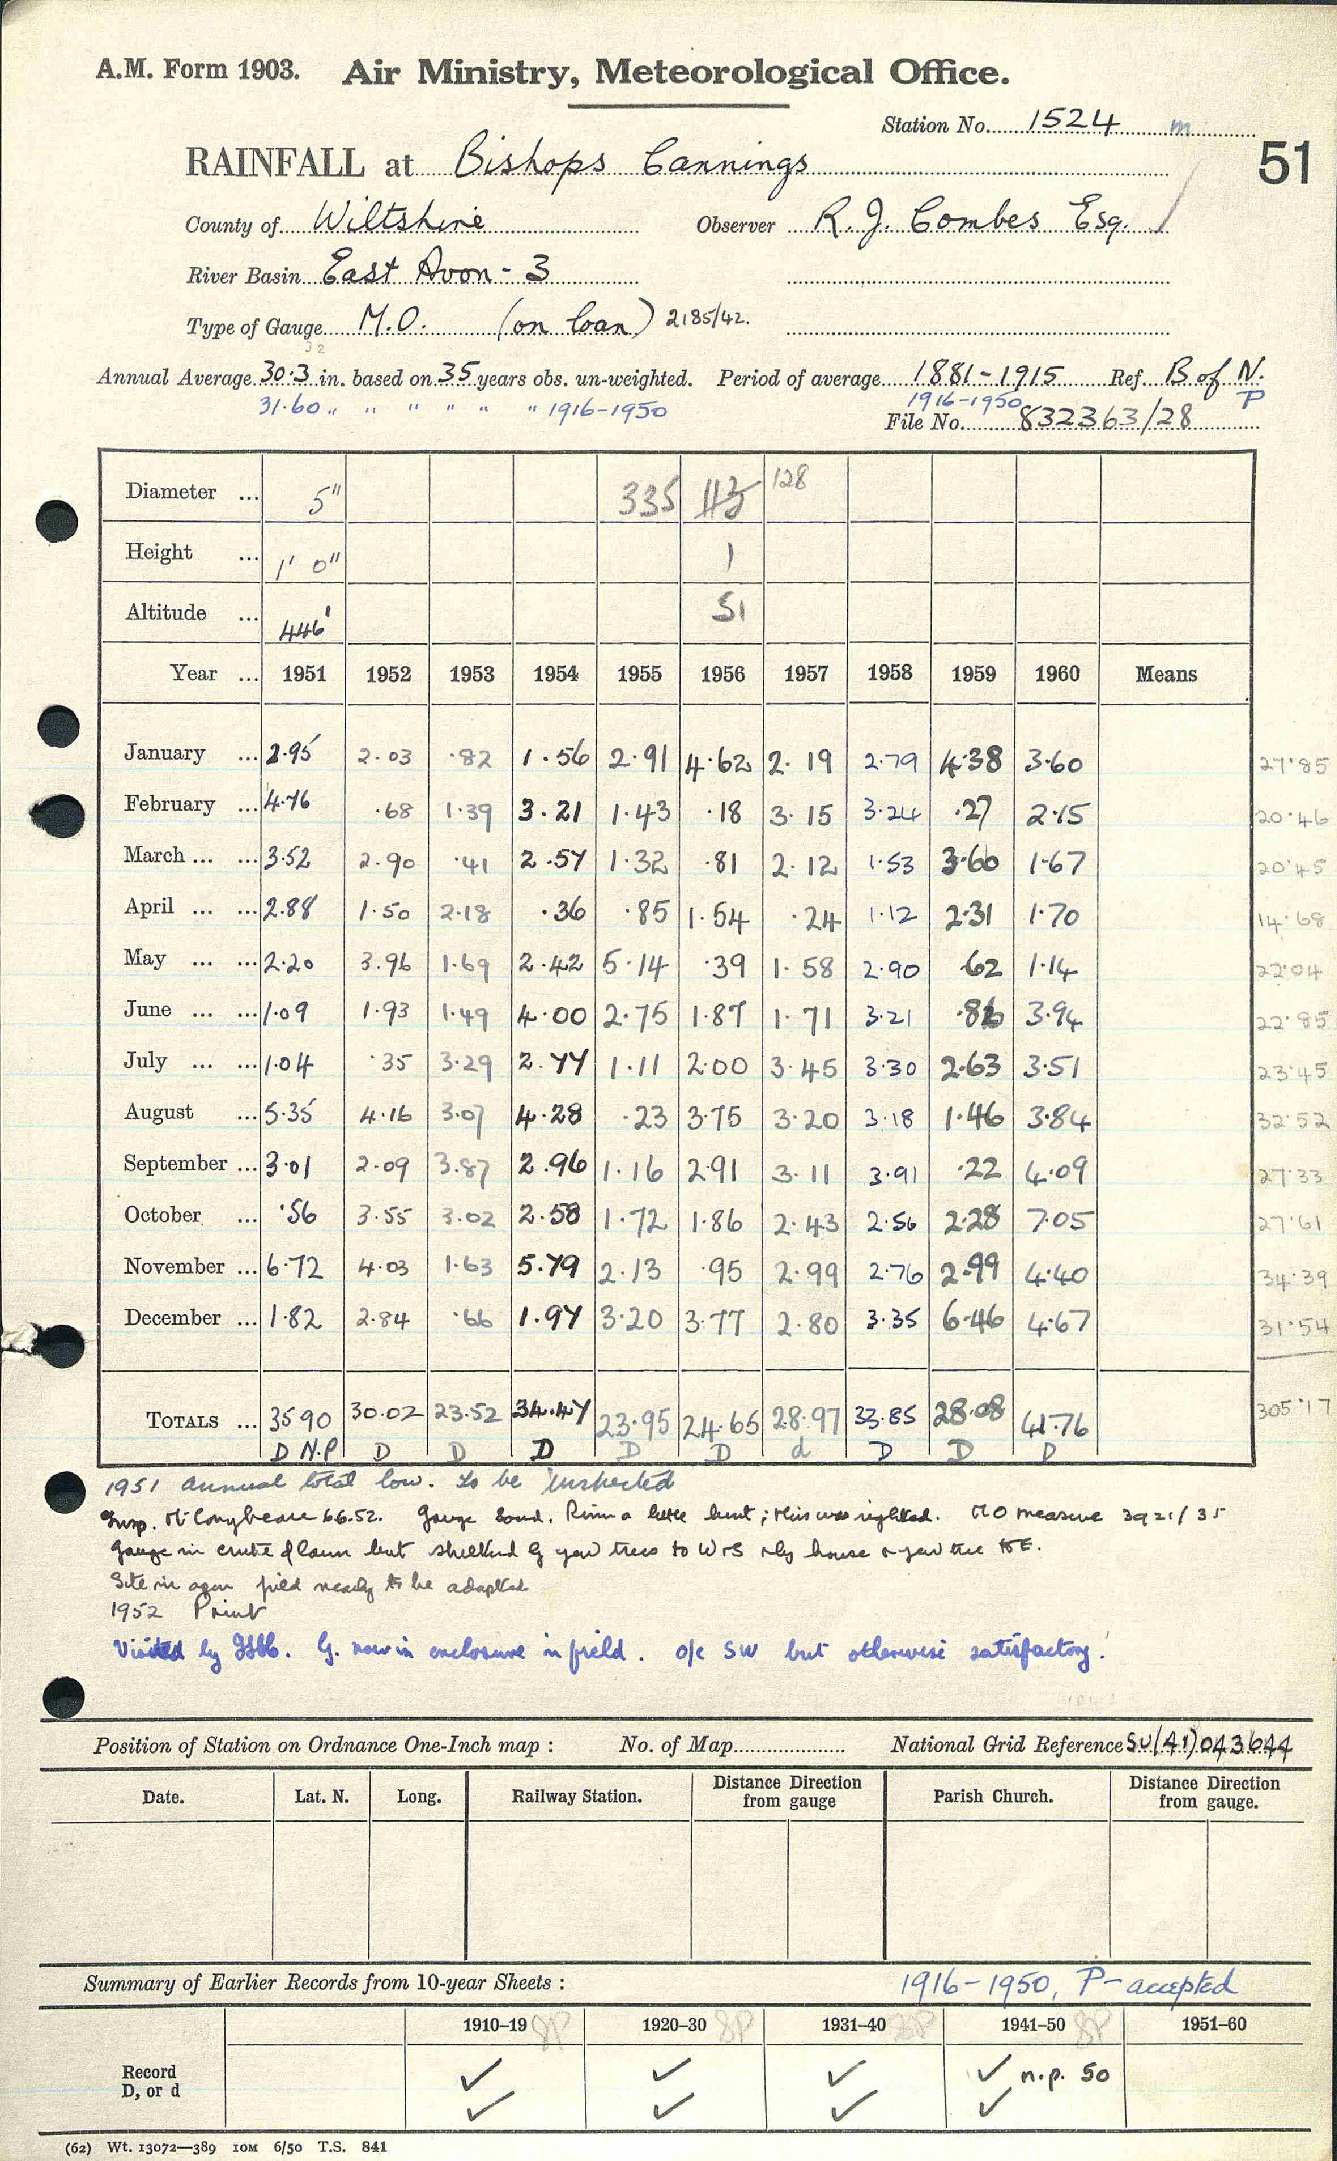 A.M. Form 1903. Air Ministry, Meteorological Office.
Station No. 1524 m
51
RAINFALL at Bishops Cannings
County of Wiltshire Observer R. J. Combes Esq.
River Basin East Avon - 3
Type of Gauge M.O. (on loan) 2185/42.
32
Annual Average 30.3 in. based on 35 years obs. un-weighted. Period of average 1881-1915 Ref. B of N.
31.60 " " " " " " 1916-1950 1916-1950 P
File No. 832363/28
Diameter ... 5" 335 113 128
Height ... 1' 0" 1
Altitude ... 446' 51
Year ... 1951 1952 1953 1954 1955 1956 1957 1958 1959 1960 Means
January ... 2.95 2.03 .82 1.56 2.91 4.62 2.19 2.79 4.38 3.60 27.85
February ... 4.76 .68 1.39 3.21 1.43 .18 3.15 3.24 .27 2.15 20.46
March ... ... 3.52 2.90 .41 2.57 1.32 .81 2.12 1.53 3.60 1.67 20.45
April ... ... 2.88 1.50 2.18 .36 .85 1.54 .24 1.12 2.31 1.70 14.68
May ... ... 2.20 3.96 1.69 2.42 5.14 .39 1.58 2.90 .62 1.14 22.04
June ... ... 1.09 1.93 1.49 4.00 2.75 1.87 1.71 3.21 .86 3.94 22.85
July ... ... 1.04 .35 3.29 2.77 1.11 2.00 3.45 3.30 2.63 3.51 23.45
August ... 5.35 4.16 3.07 4.28 .23 3.75 3.20 3.18 1.46 3.84 32.52
September ... 3.01 2.09 3.87 2.96 1.16 2.91 3.11 3.91 .22 4.09 27.33
October ... .56 3.55 3.02 2.58 1.72 1.86 2.43 2.56 2.28 7.05 27.61
November ... 6.72 4.03 1.63 5.79 2.13 .95 2.99 2.76 2.99 4.40 34.39
December ... 1.82 2.84 .66 1.97 3.20 3.77 2.80 3.35 6.46 4.67 31.54
TOTALS ... 35.90 30.02 23.52 34.47 23.95 24.65 28.97 33.85 28.08 41.76 305.17
D N.P D D D D D d D D D
1951 annual total low. To be inspected
Insp. Conybeare 6.6.52. Gauge Good. Rim a little bent; this was righted. MO measure 3921/35
Gauge in centre of lawn but sheltered by yew trees to W & S by house & yew tree
Site in open field nearby to be adopted
1952 Print
Visited by G. now in enclosure in field. o/c SW but otherwise satisfactory.
Position of Station on Ordnance One-Inch map : No. of Map National Grid Reference SU(41)043644
Date. Lat. N. Long. Railway Station. Distance Direction from gauge Parish Church. Distance Direction from gauge.
Summary of Earlier Records from 10-year Sheets : 1916-1950, P- accepted
1910–19 8P 1920–30 8P 1931–40 8P 1941–50 8P 1951–60
Record ✓ ✓ ✓ ✓ n.p. 50
D, or d ✓ ✓ ✓ ✓
(62) Wt. 13072—389 10M 6/50 T.S. 841